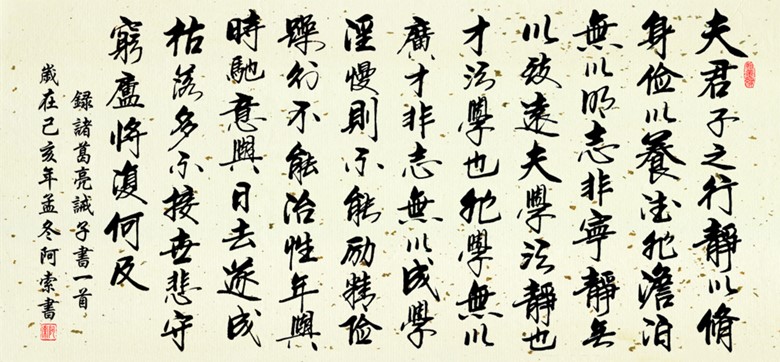 夫君子之行靜以脩
身儉以養德非澹泊
無以明志非寧靜無
以致遠夫學須靜也
才須學也非學無以
廣才非志無以成學
淫慢則不能励精險
躁則不能治性年與
時馳意與日去遂成
枯落多不接世悲守
窮廬將復何及
録諸葛亮誡子書一首
歲在己亥年孟冬阿索書